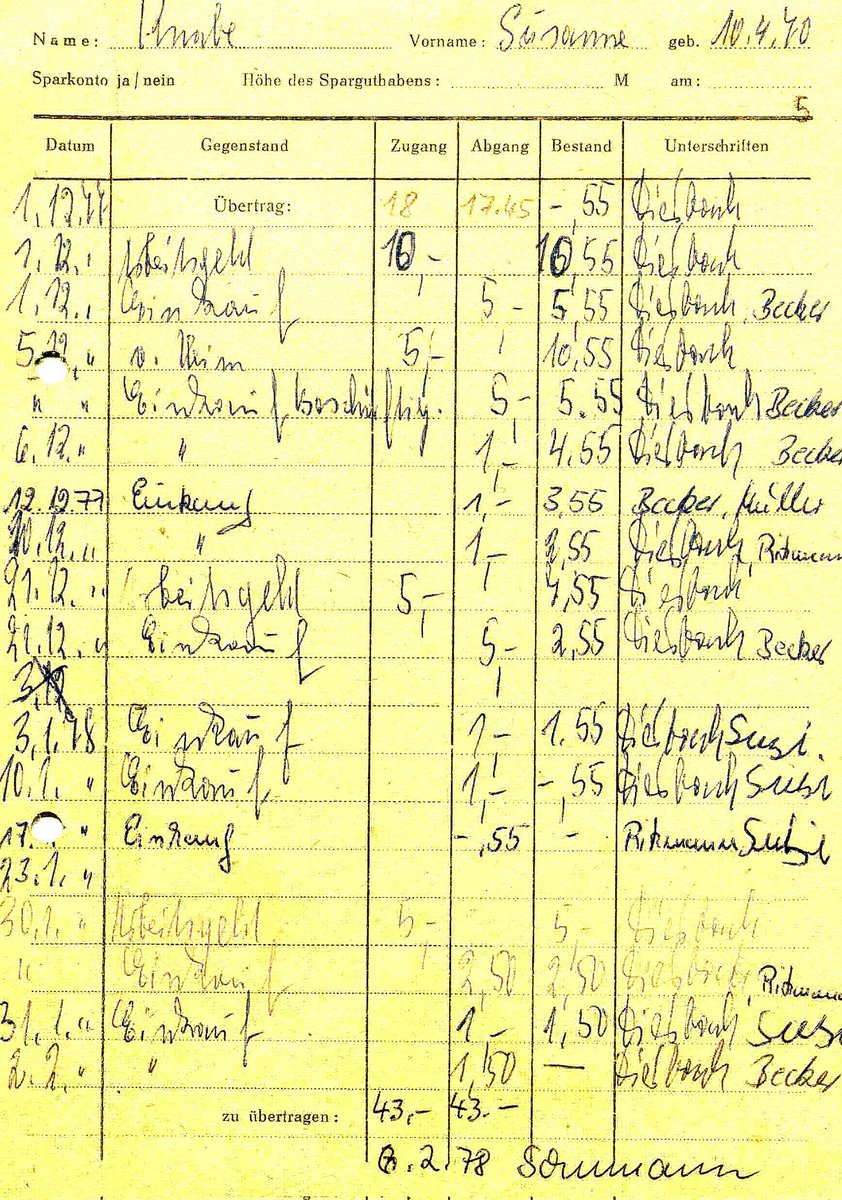 Name: Knabe Vorname: Susanne geb. 10.4.70
Sparkonto ja/nein Höhe des Sparguthabens: M am:
5
Datum Gegenstand Zugang Abgang Bestand Unterschriften
1.12.77 Übertrag: 18 17.45 -,55 Diesbach
1.12. " Arbeitsgeld 10,- 10,55 Diesbach
1.12. " Einkauf 5,- 5,55 Diesbach, Becker
5.12. " v. Heim 5,- 10,55 Diesbach
" " Einkauf 5,- 5.55 Diesbach Becker
6.12. " " 1,- 4,55 Diesbach Becker
12.12.77 Einkauf 1,- 3,55 Becker, Müller
20.12. " " 1,- 2,55 Diesbach, Ritmann
21.12. " Arbeitsgeld 5,- 7,55 Diesbach
21.12. " Einkauf 5,- 2,55 Diesbach Becker
3.12
3.1.78 Einkauf 1,- 1.55 Diesbach Susi.
10.1. " Einkauf 1,- -,55 Diesbach Susi
17. " Einkauf -,55 - Ritmann
23.1. "
30.1. " Arbeitsgeld 5,- 5,- Diesbach
" Einkauf 2,50 2,50 Diesbach, Ritmann
31.1. " Einkauf 1,- 1,50 Diesbach Susi
2.2. " " 1,50 — Diesbach Becker
zu übertragen: 43,- 43.-
2.78